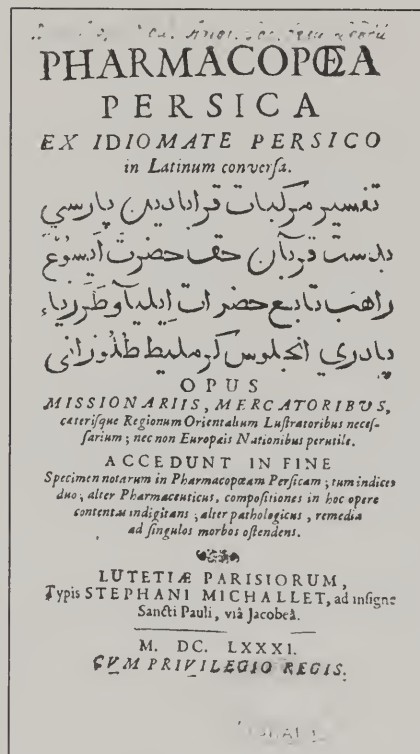 PHARMACOPŒA
PERSICA
EX IDIOMATE PERSICO
in Latinum conversa.
تفسير مركبات قرابادين پارسي
بدست قربان حق حضرت ايسوع
راهب تابع حضرات ايليا و طرزياء
پادري انجلوس كرمليط طلوزاني
OPUS
MISSIONARIIS, MERCATORIBVS,
cæterisque Regionum Orientalium Lustratoribus neces-
sarium; nec non Europæis Nationibus perutile.
ACCEDUNT IN FINE
Specimen notarum in Pharmacopœam Persicam; tum indices
duo; alter Pharmaceuticus, compositiones in hoc opere
contentas indigitans; alter pathologicus, remedia
ad singulos morbos ostendens.
LUTETIÆ PARISIORUM,
Typis STEPHANI MICHALLET, ad insigne
Sancti Pauli, viâ Jacobeâ.
M. DC. LXXXI.
CVM PRIVILEGIO REGIS.